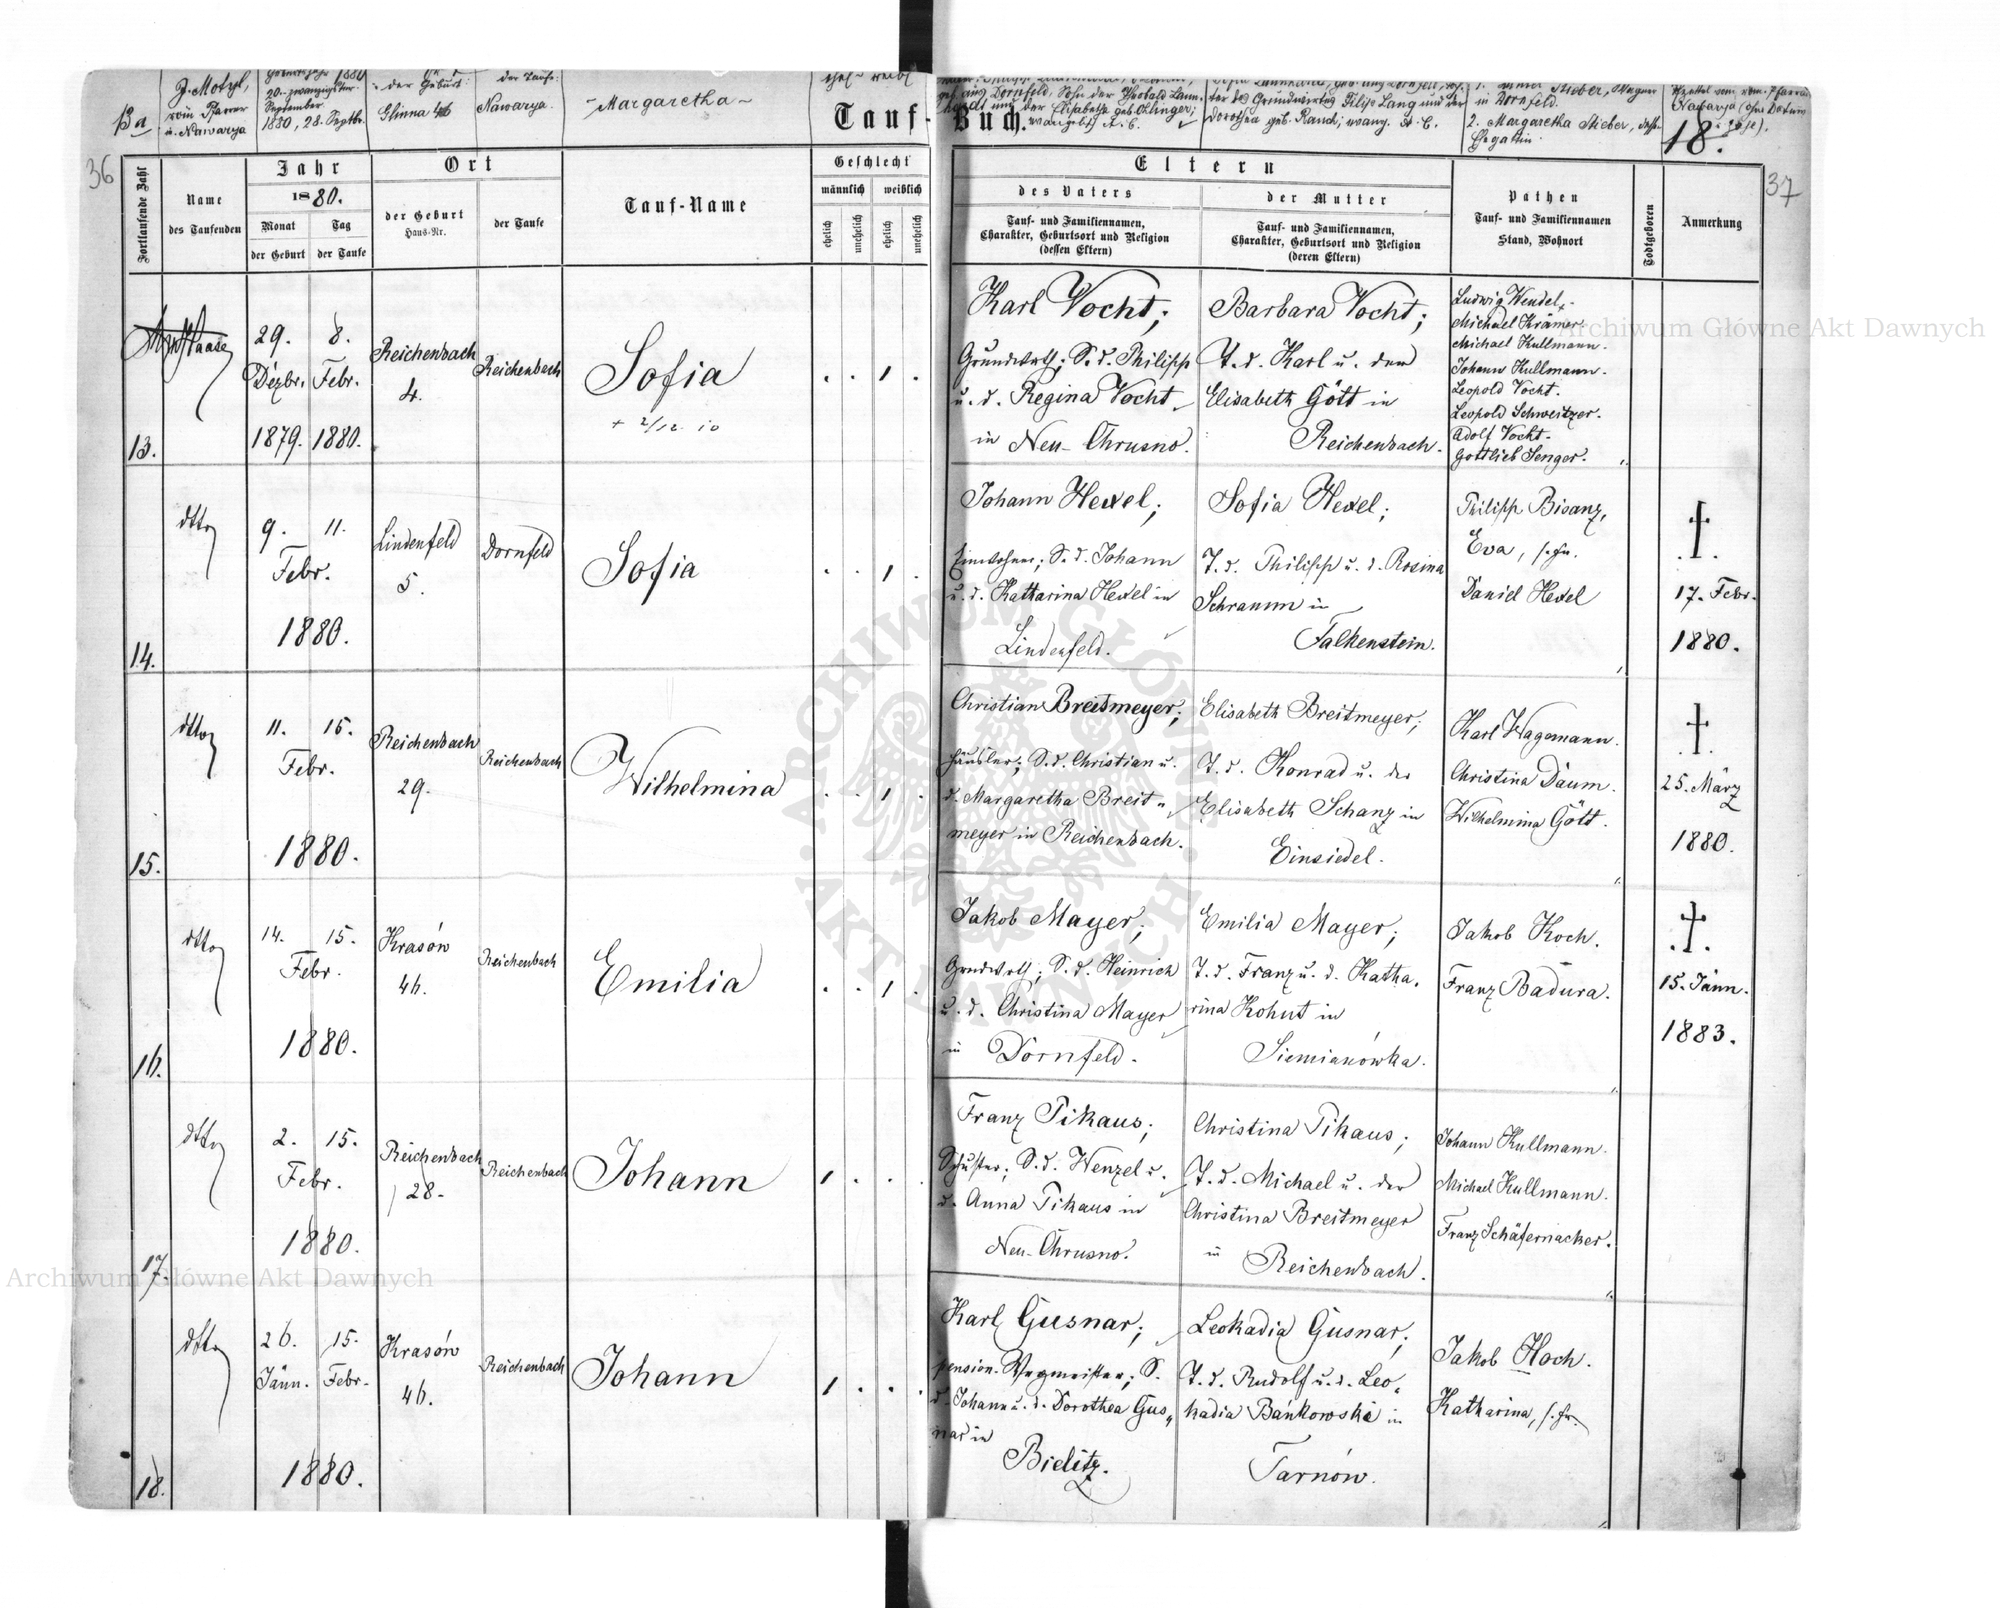 13a
J. Motzyl,
röm Pfarrer
u. Nawarya
20. zwanzigster
September
1880, 28. Septbr.
der Geburt:
Glinna 46
der Taufe:
Nawarya.
- Margaretha -
ehel - weibl
aus Dornfeld, Sohn der Theobald Lann-
hardt und der Elisabetha geb. Ehlinger;
evangelisch A. C.
ter des Grundwirtes Filip Lang und der
Dorothea geb. Rauch; evang. A. C.
in Dornfeld.
2. Margaretha Stieber, dessen
Ehegattin
Nawarya (ohne Datum
Tauf-Buch.
18.
36
37
Fortlaufende Zahl
Name
des Taufenden
Jahr
1880.
Monat
Tag
der Geburt
der Taufe
Ort
der Geburt
Haus-Nr.
der Taufe
Tauf-Name
Geschlecht
männlich
weiblich
ehelich
unehelich
ehelich
unehelich
Eltern
des Vaters
Tauf- und Familiennamen,
Charakter, Geburtsort und Religion
(dessen Eltern)
der Mutter
Tauf- und Familiennamen,
Charakter, Geburtsort und Religion
(deren Eltern)
Pathen
Tauf- und Familiennamen
Stand, Wohnort
Todtgeboren
Anmerkung
13.
29. 8.
Dezbr. Febr.
1879. 1880.
Reichenbach
4.
Reichenbach
Sofia
+ 2/12. 10
. . 1 .
Karl Vocht;
Grundwrth; S. d. Philipp
u. d. Regina Vocht
in Neu-Chrusno.
Barbara Vocht;
T. d. Karl u. der
Elisabeth Gött in
Reichenbach.
Ludwig Wendel.
Michael Krämer.
Michael Kullmann.
Johann Kullmann.
Leopold Vocht.
Leopold Schweitzer.
Adolf Vocht.
Gottlieb Senger.
14.
dtto
9. 11.
Febr.
1880.
Lindenfeld
5.
Dornfeld
Sofia
. . 1 .
Johann Hexel;
Einwohner; S. d. Johann
u. d. Katharina Hexel in
Lindenfeld.
Sofia Hexel;
T. d. Philipp u. d. Rosina
Schramm in
Falkenstein.
Philipp Bisanz,
Eva, s. Fr.
Daniel Hexel
†
17. Febr.
1880.
15.
dtto
11. 15.
Febr.
1880.
Reichenbach
29.
Reichenbach
Wilhelmina
. . 1 .
Christian Breitmeyer;
Häusler; S. d. Christian u.
d. Margaretha Breit-
meyer in Reichenbach.
Elisabeth Breitmeyer;
T. d. Konrad u. der
Elisabeth Schanz in
Einsiedel.
Karl Wagemann.
Christina Daum.
Wilhelmina Gött.
†
25. März
1880.
16.
dtto
14. 15.
Febr.
1880.
Krasów
46.
Reichenbach
Emilia
. . 1 .
Jakob Mayer;
Grndwrth; S. d. Heinrich
u. d. Christina Mayer
in Dornfeld.
Emilia Mayer;
T. d. Franz u. d. Katha-
rina Kohut in
Siemianówka.
Jakob Koch.
Franz Badura.
†
15. Jänn.
1883.
17.
dtto
2. 15.
Febr.
1880.
Reichenbach
28.
Reichenbach
Johann
1 . . .
Franz Pikaus;
Schuster; S. d. Wenzel u.
d. Anna Pikaus in
Neu-Chrusno.
Christina Pikaus;
T. d. Michael u. der
Christina Breitmeyer
in Reichenbach.
Johann Kullmann.
Michael Kullmann.
Franz Schäfernacker.
18.
dtto
26. 15.
Jänn. Febr.
1880.
Krasów
46.
Reichenbach
Johann
1 . . .
Karl Gusnar;
pension. Wegmeister; S.
d. Johann u. d. Dorothea Gus-
nar in
Bielitz.
Leokadia Gusnar;
T. d. Rudolf u. d. Leo-
kadia Bańkowski in
Tarnów.
Jakob Hoch.
Katharina, s. Fr.
Archiwum Główne Akt Dawnych
Archiwum Główne Akt Dawnych
ARCHIWUM GŁÓWNE AKT DAWNYCH